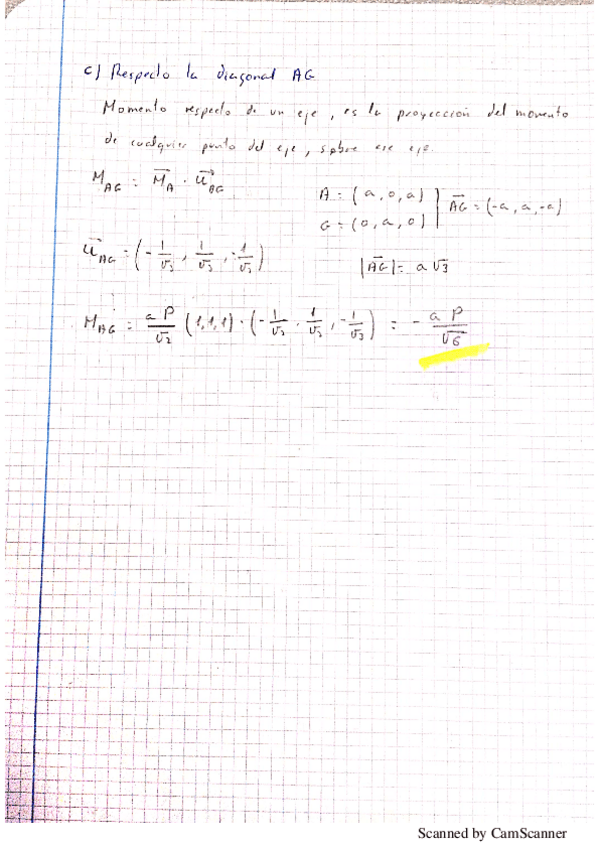 c) Respecto la diagonal AG
Momento respecto de un eje, es la proyección del momento
de cualquier punto del eje, sobre ese eje.
M_AG = M⃗_A · u⃗_AG
A = (a, 0, a)
G = (0, a, 0)
A⃗G = (-a, a, -a)
u⃗_AG = (-1/√3, 1/√3, -1/√3)
|A⃗G| = a√3
M_AG = aP/√2 (1,1,1) · (-1/√3, 1/√3, -1/√3) = - aP/√6
Scanned by CamScanner